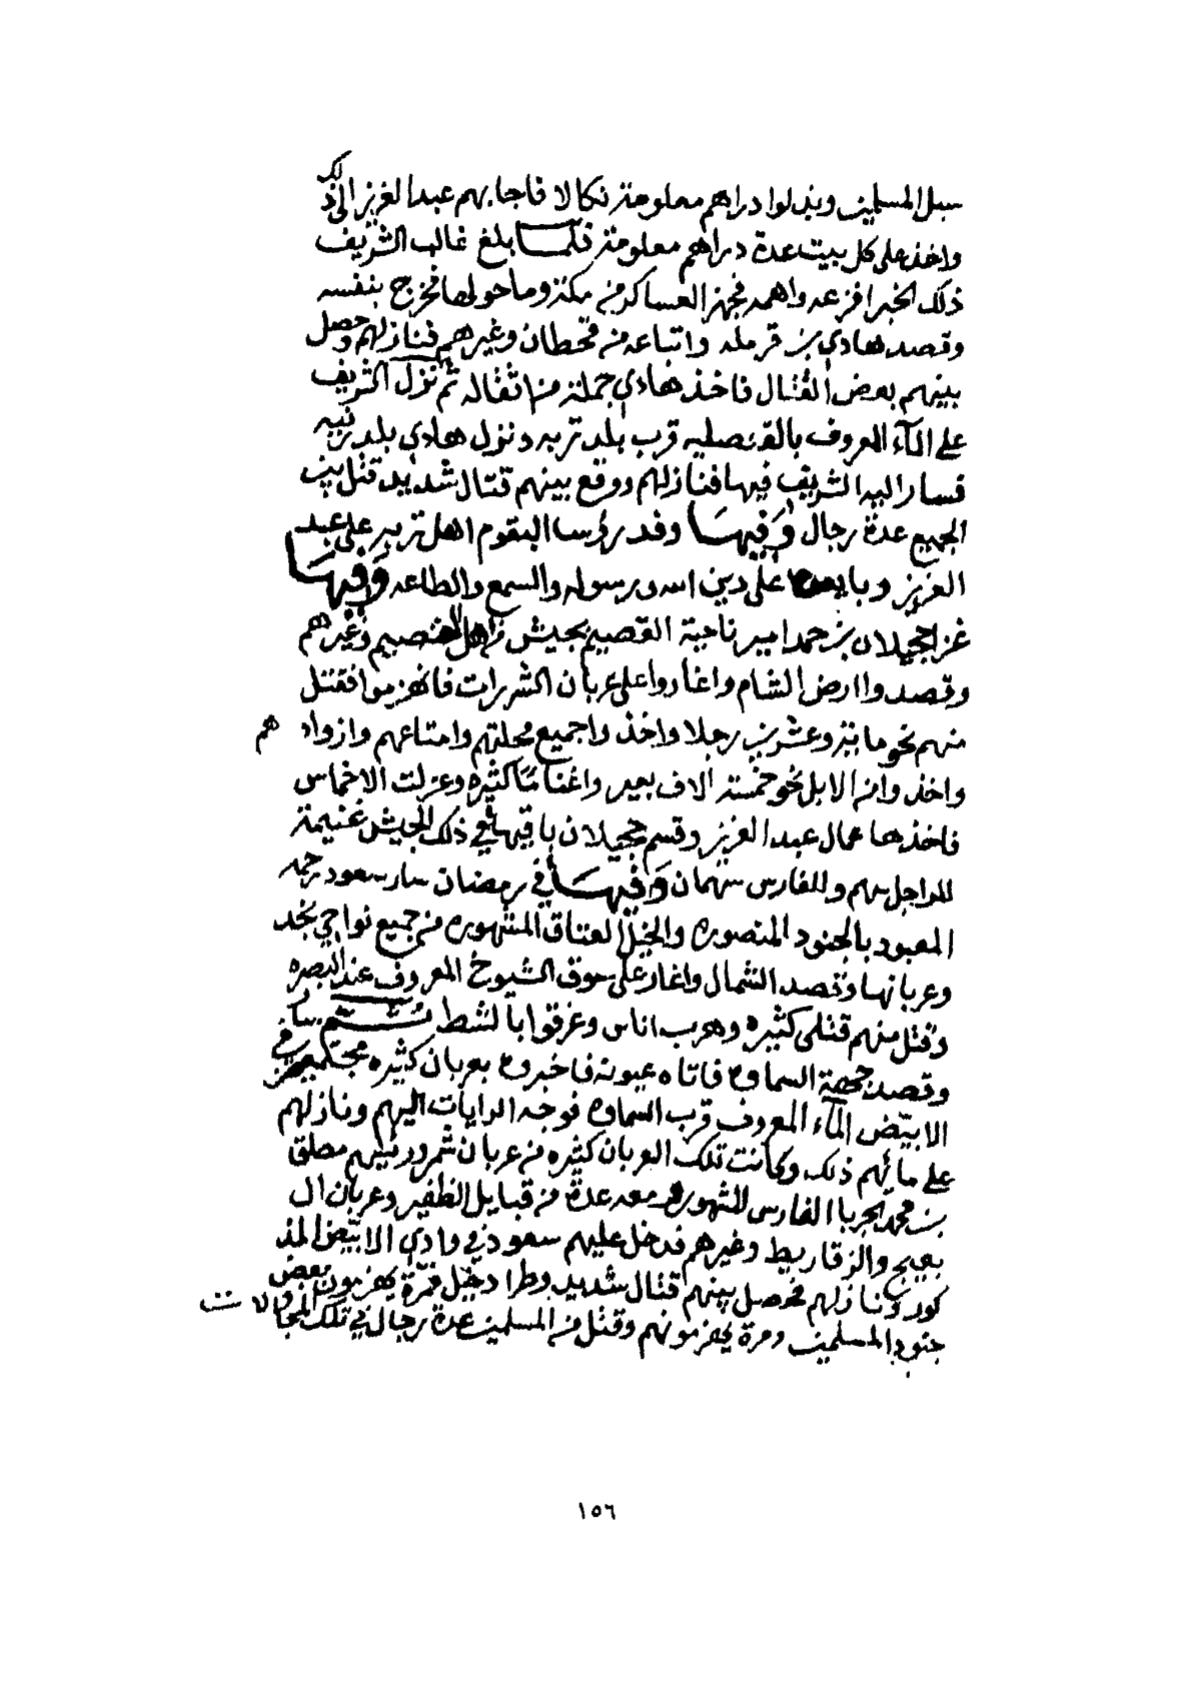 سبل المسلمين وبذلوا دراهم معلومة نكالا فاجابهم عبدالعزيز الى ذلك
واخذ على كل بيت عدة دراهم معلومة فلما بلغ غالب الشريف
ذلك الخبر افزعه واهمه فجهز العساكر من مكة وما حولها فخرج بنفسه
وقصد هادي بن قرمله واتباعه من قحطان وغيرهم فنازلهم وحصل
بينهم بعض القتال فاخذ هادي جملة من اثقاله ثم نزل الشريف
على الماء المعروف بالقنصليه قرب بلد تربه ونزل هادي بلد رنيه
فسار اليه الشريف فيها فنازلهم ووقع بينهم قتال شديد قتل بين
الجميع عدة رجال وفيها وفد رؤسا البقوم اهل تربه على عبد
العزيز وبايعوه على دين الله ورسوله والسمع والطاعه وفيها
غزا حجيلان بن حمد امير ناحية القصيم بجيش من اهل القصيم وغيرهم
وقصدوا ارض الشام واغاروا على عربان الشرارات فانهزموا فقتل
منهم نحو ماية وعشرين رجلا واخذوا جميع محلتهم وامتاعهم وازوادهم
واخذوا من الابل نحو خمسة الاف بعير واغناما كثيره وعزلت الاخماس
فاخذها عمال عبدالعزيز وقسم حجيلان باقيها في ذلك الجيش غنيمة
للراجل سهم وللفارس سهمان وفيها في رمضان سار سعود رحمه
المعبود بالجنود المنصوره والخيل العتاق المشهوره من جميع نواحي نجد
وعربانها وقصد الشمال واغار على سوق الشيوخ المعروف عند البصره
وقتل منهم قتلى كثيره وهرب اناس وغرقوا بالشط ثم سار
وقصد جهة السماوه فاتاه عيونه فاخبروه بعربان كثيره مجتمعين في
الابيّض الماء المعروف قرب السماوه فوجه الرايات اليهم ونازلهم
على مائهم ذلك وكانت تلك العربان كثيره من عربان شمر ورئيسهم مطلق
بن محمد الجربا الفارس المشهور ومعه عدة من قبايل الظفير وعربان ال
بعيج والزقاريط وغيرهم فدخل عليهم سعود في وادي الابيّض المذ
كور ونازلهم فحصل بينهم قتال شديد وطراد خيل فمرة يهزمون بعض
جنود المسلمين ومرة يهزمونهم وقتل من المسلمين عدة رجال في تلك المجاولات
١٥٦